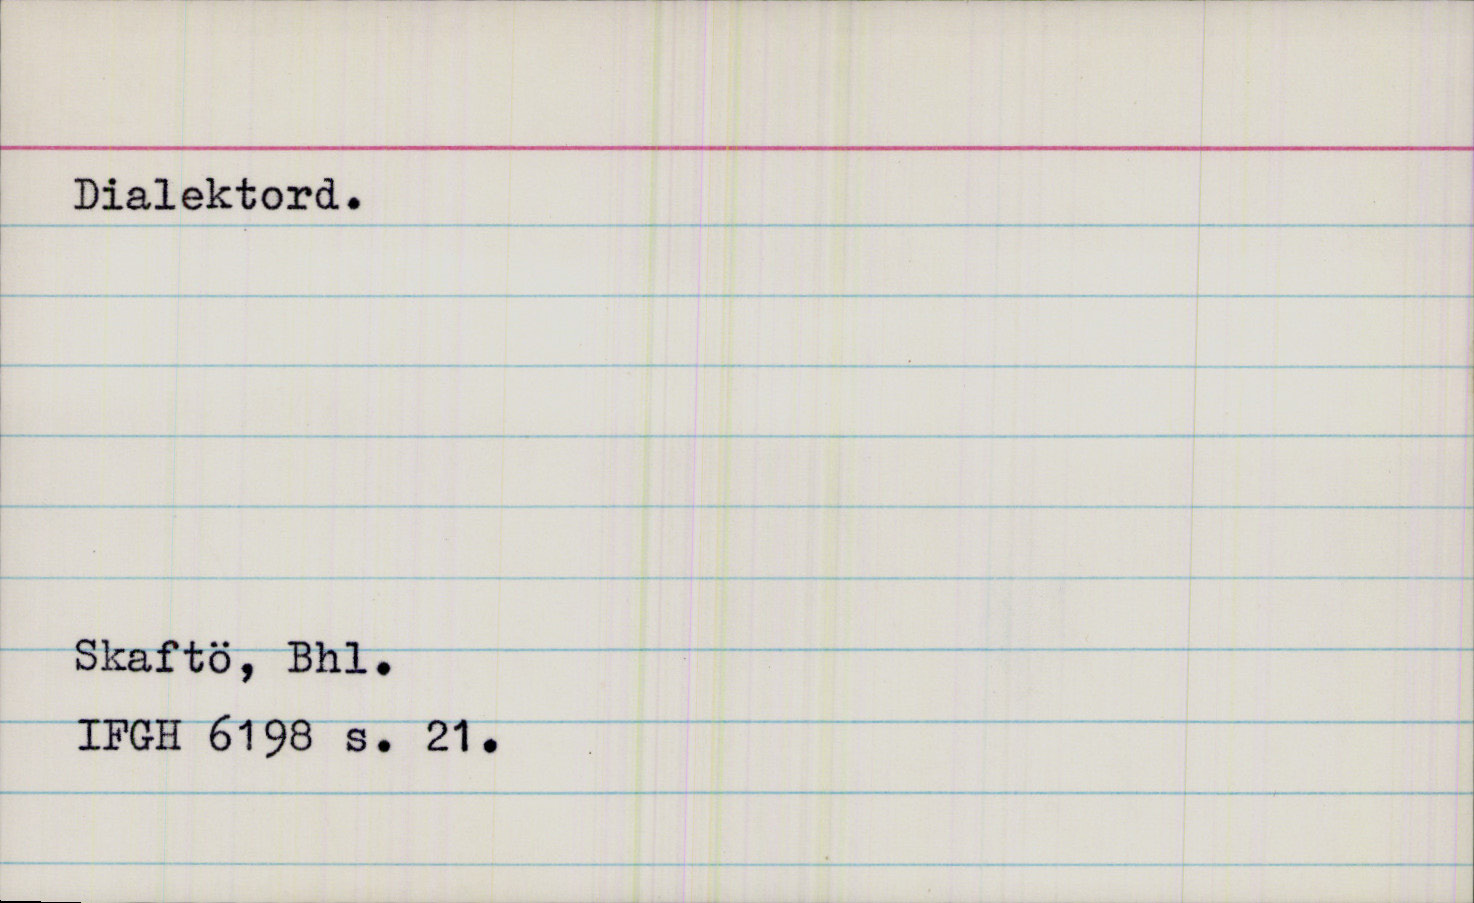 Dialektord.
Skaftö, Bhl.
IFGH 6198 s. 21.